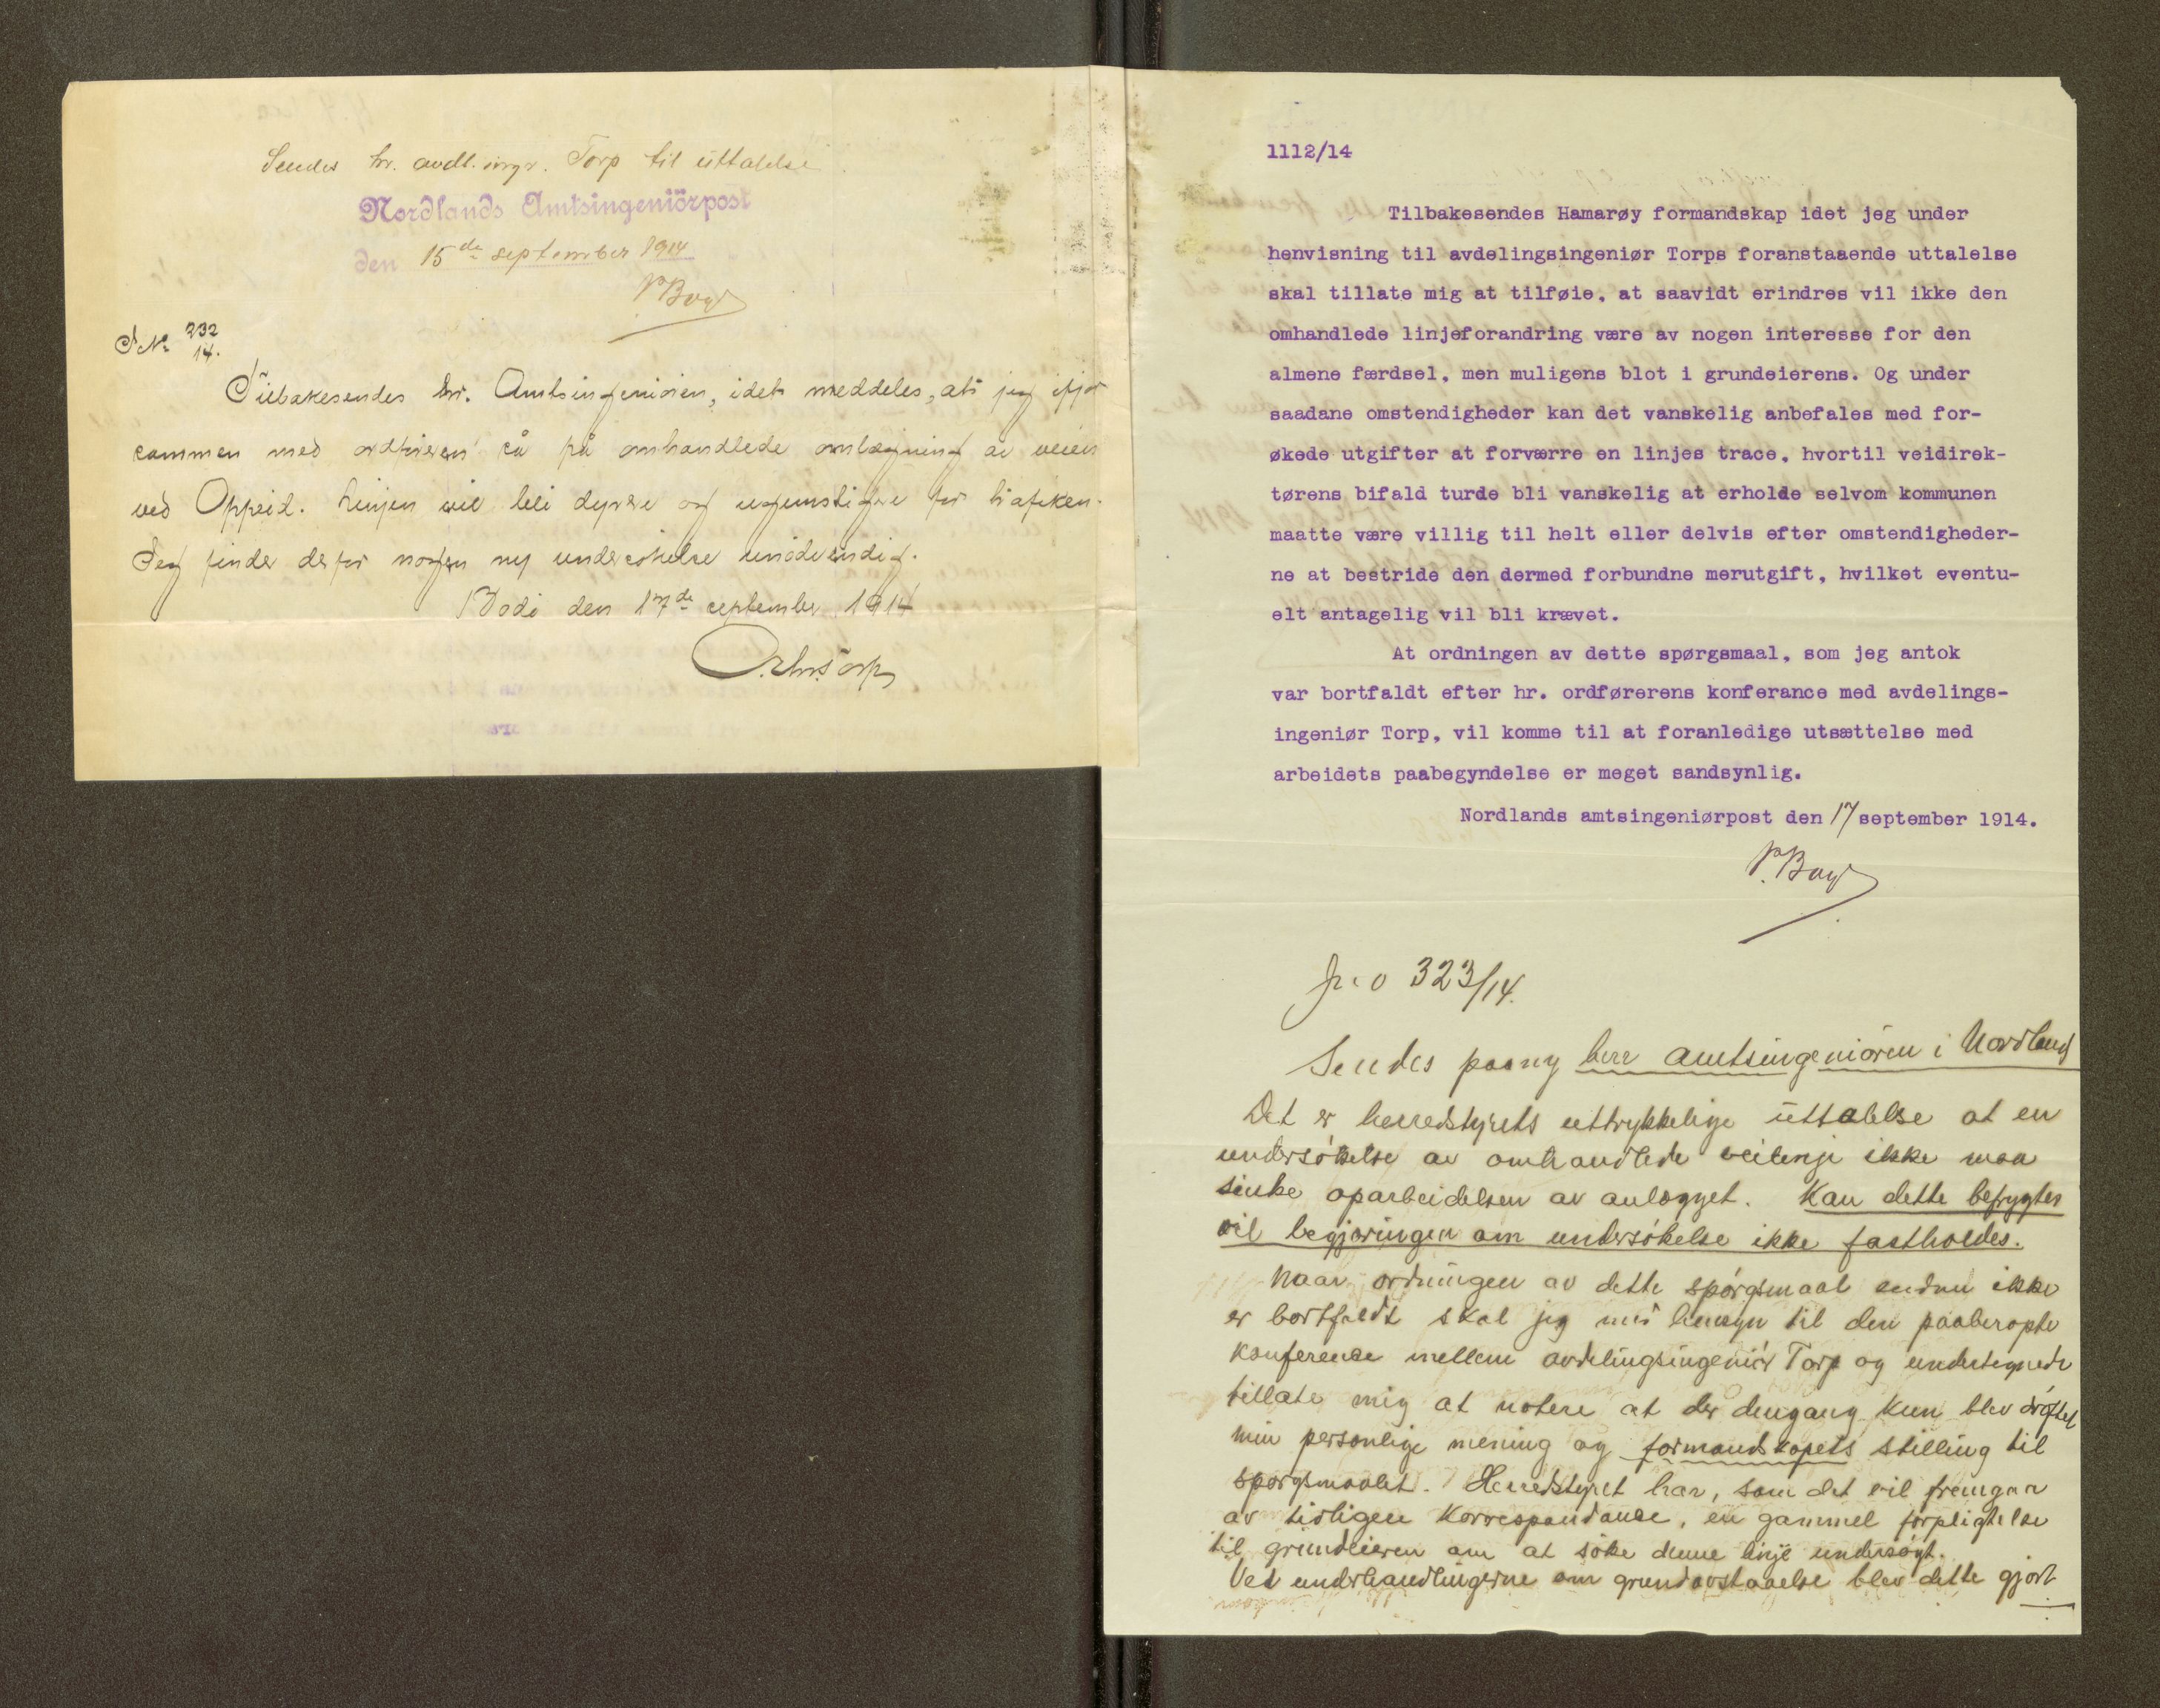 Sendes hr. avdl.ingr. Torp til uttalelse
Nordlands Amtsingeniörpost
den 15de september 1914
J№ 232/14.
Tilbakesendes hr. Amtsingeniören, idet meddeles, at jeg ifjor
sammen med ordföreren så på omhandlede omlægning av veien
ved Oppeid. Linjen vil bli dyrere og ugunstigere for trafiken.
Jeg finder derfor nogen ny undersökelse unödvendig.
Bodö den 17de september 1914
O. Chr. Torp
1112/14
Tilbakesendes Hamarøy formandskap idet jeg under
henvisning til avdelingsingeniør Torps foranstaaende uttalelse
skal tillate mig at tilføie, at saavidt erindres vil ikke den
omhandlede linjeforandring være av nogen interesse for den
almene færdsel, men muligens blot i grundeierens. Og under
saadane omstendigheder kan det vanskelig anbefales med for-
økede utgifter at forværre en linjes trace, hvortil veidirek-
tørens bifald turde bli vanskelig at erholde selvom kommunen
maatte være villig til helt eller delvis efter omstendigheder-
ne at bestride den dermed forbundne merutgift, hvilket eventu-
elt antagelig vil bli krævet.
At ordningen av dette spørgsmaal, som jeg antok
var bortfaldt efter hr. ordførerens konferance med avdelings-
ingeniør Torp, vil komme til at foranledige utsættelse med
arbeidets paabegyndelse er meget sandsynlig.
Nordlands amtsingeniørpost den 17 september 1914.
323/14.
Sendes paany herr amtsingeniören i Nordland
Det er herredstyrets uttrykkelige uttalelse at en
undersökelse av omhandlede veilinje ikke maa
sinke oparbeidelsen av anlægget. Kan dette befrygtes
vil begjæringen om undersökelse ikke fastholdes.
Naar ordningen av dette spörgsmaal endnu ikke
er bortfaldt skal jeg med hensyn til den paaberopte
konference mellem avdelingsingeniör Torp og undertegnede
tillate mig at notere at der dengang kun blev dröftet
min personlige mening og formandskapets stilling til
spörgsmaalet. Herredstyret har, som det vil fremgaa
av tidligere korrespondance, en gammel forpligtelse
til grundeieren om at söke denne linje undersögt.
Ved underhandlingerne om grundavstaaelse blev dette gjort